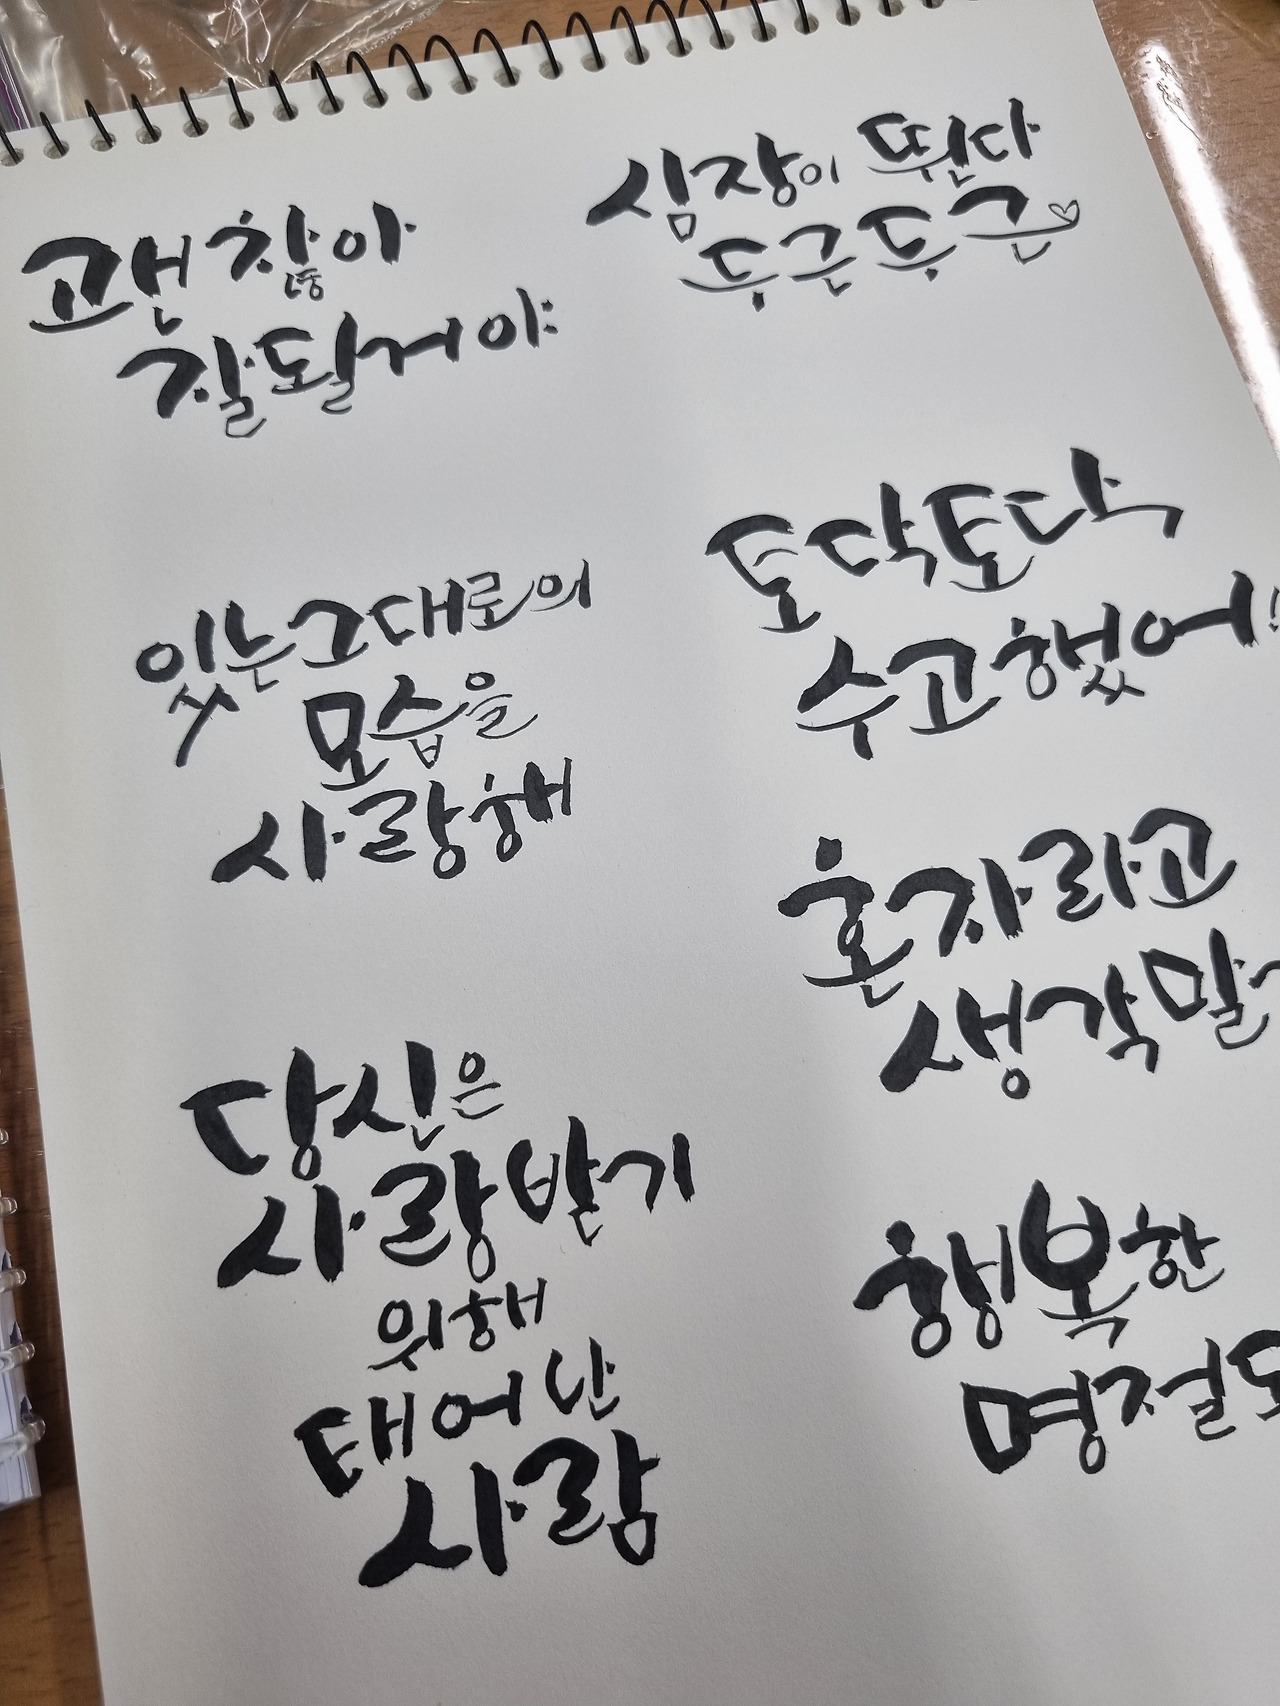 괜찮아
잘될거야
심장이 뛴다
두근두근♡
있는그대로의
모습을
사랑해
토닥토닥
수고했어!
혼자라고
생각말
당신은
사랑받기
위해
태어난
사람
행복한
명절